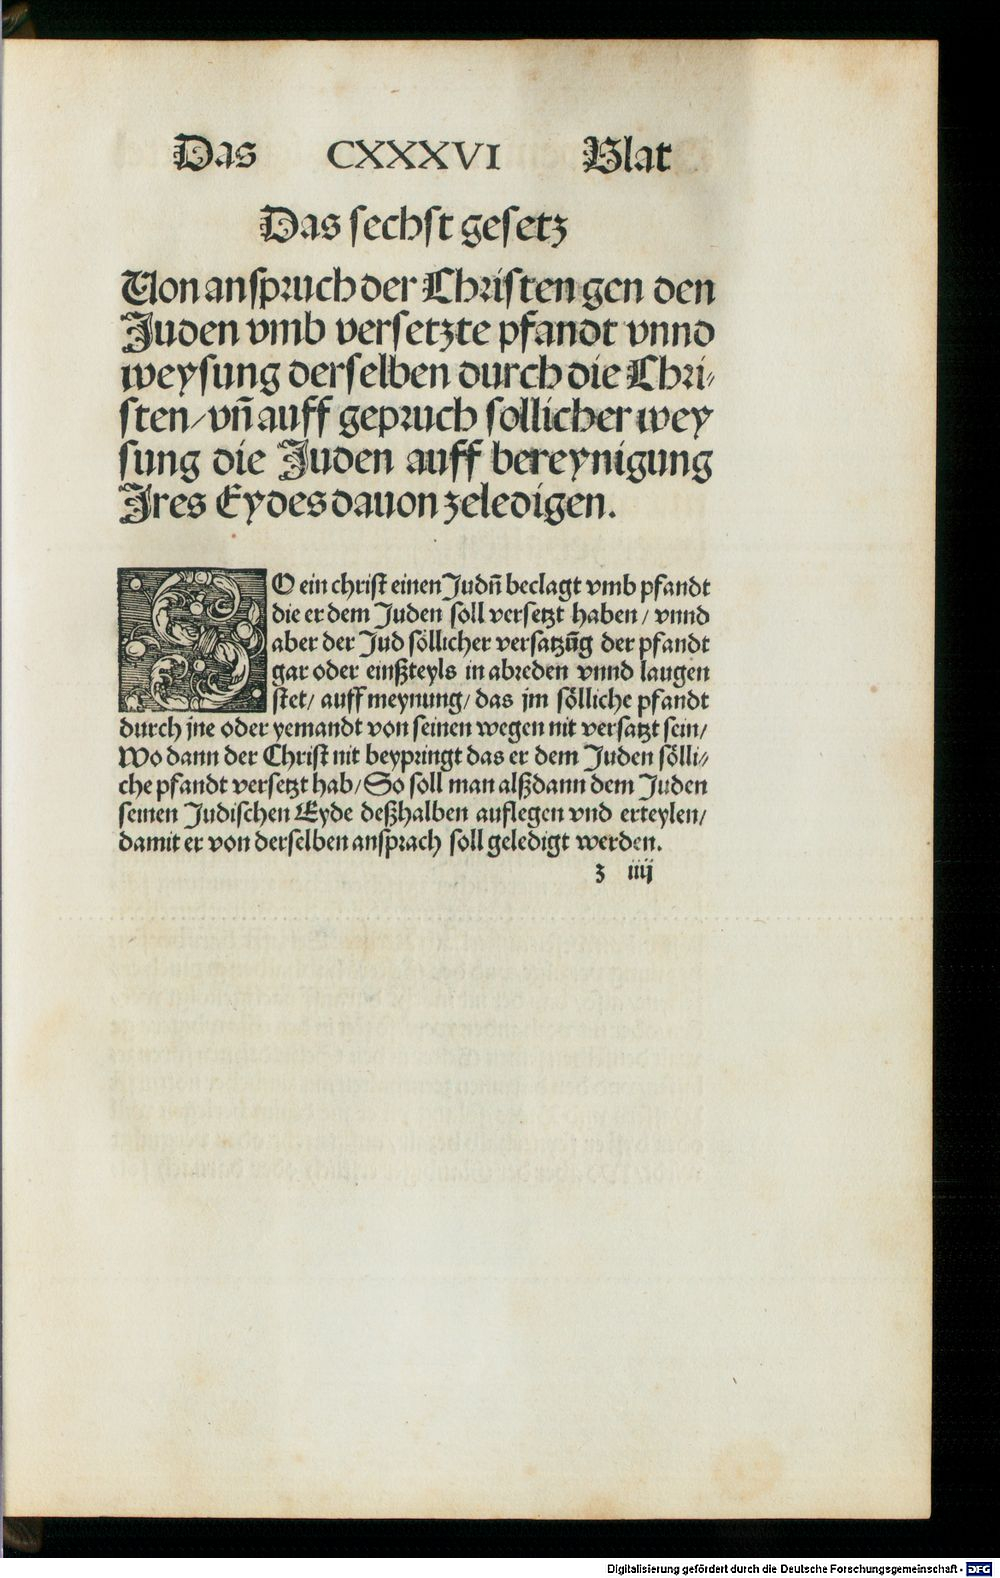 Das CXXXVI Blat
Das sechst gesetz
Von anspruch der Christen gen den
Juden vmb versetzte pfandt vnnd
weysung derselben durch die Chri⸗
sten/ vñ auff gepruch sollicher wey
sung die Juden auff bereynigung
Jres Eydes dauon zeledigen.
SO ein christ einen Judñ beclagt vmb pfandt
die er dem Juden soll versetzt haben / vnnd
aber der Jud söllicher versatzũg der pfandt
gar oder einßteyls in abreden vnnd laugen
stet/ auff meynung/ das jm sölliche pfandt
durch jne oder yemandt von seinen wegen nit versatzt sein/
Wo dann der Christ nit beypringt das er dem Juden sölli⸗
che pfandt versetzt hab/ So soll man alßdann dem Juden
seinen Judischen Eyde deßhalben auflegen vnd erteylen/
damit er von derselben ansprach soll geledigt werden.
z iiij
Digitalisierung gefördert durch die Deutsche Forschungsgemeinschaft - DFG